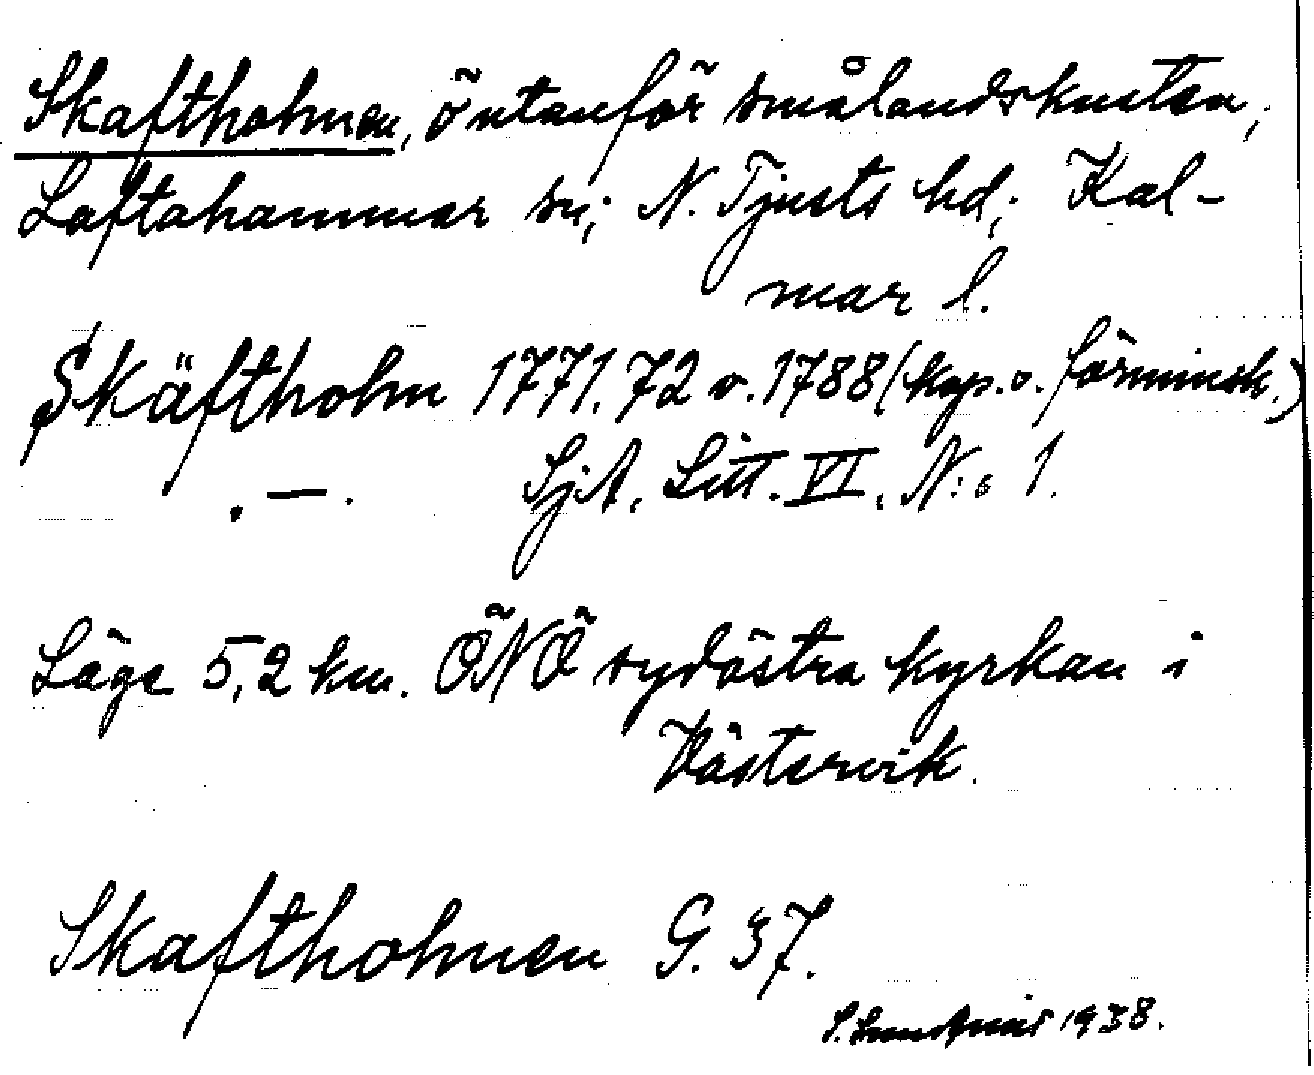 Skaftholmen, ö utanför smålandskusten,
Loftahammar sn; N. Tjusts hd; Kal-
mar l.
Skäftholm 1771.72 o. 1788 (kop. o. förminsk.)
. — . SjA, Litt. VI, N:o 1.
Läge 5,2 km. ÖNÖ sydöstra kyrkan i
Västervik.
Skaftholmen G. 37.
1938.